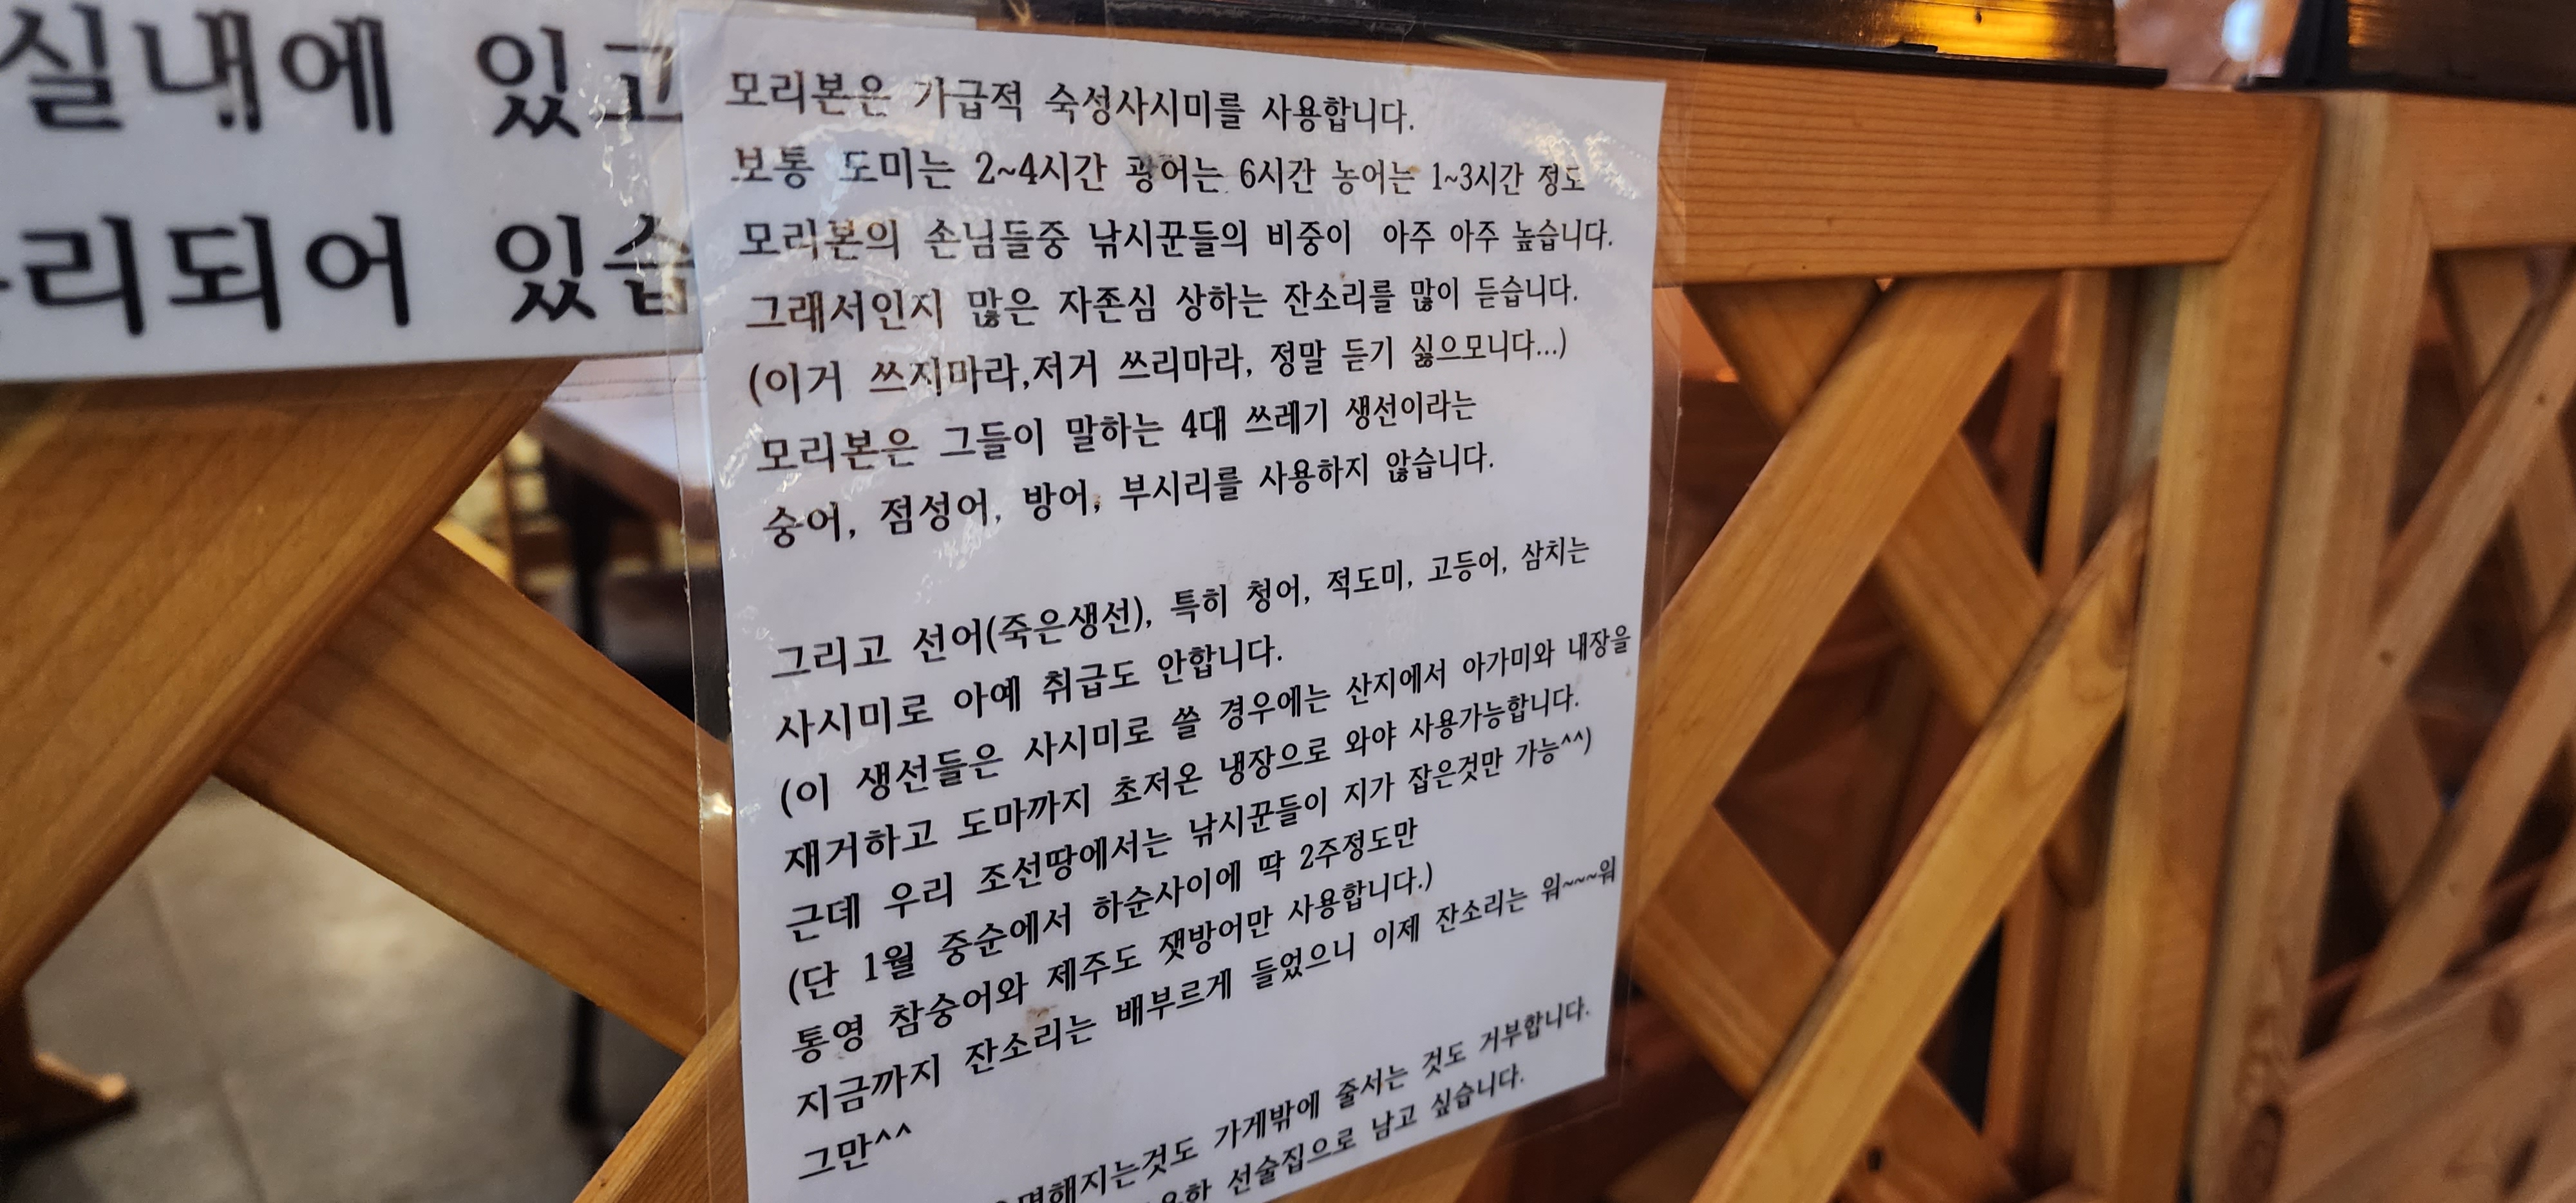 실내에 있고
리되어 있습
모리본은 가급적 숙성사시미를 사용합니다.
보통 도미는 2~4시간 광어는 6시간 농어는 1~3시간 정도
모리본의 손님들중 낚시꾼들의 비중이 아주 아주 높습니다.
그래서인지 많은 자존심 상하는 잔소리를 많이 듣습니다.
(이거 쓰지마라,저거 쓰리마라, 정말 듣기 싫으모니다...)
모리본은 그들이 말하는 4대 쓰레기 생선이라는
숭어, 점성어, 방어, 부시리를 사용하지 않습니다.
그리고 선어(죽은생선), 특히 청어, 적도미, 고등어, 삼치는
사시미로 아예 취급도 안합니다.
(이 생선들은 사시미로 쓸 경우에는 산지에서 아가미와 내장을
재거하고 도마까지 초저온 냉장으로 와야 사용가능합니다.
근데 우리 조선땅에서는 낚시꾼들이 지가 잡은것만 가능^^)
(단 1월 중순에서 하순사이에 딱 2주정도만
통영 참숭어와 제주도 잿방어만 사용합니다.)
지금까지 잔소리는 배부르게 들었으니 이제 잔소리는 워~~~워
그만^^
명해지는것도 가게밖에 줄서는 것도 거부합니다.
선술집으로 남고 싶습니다.